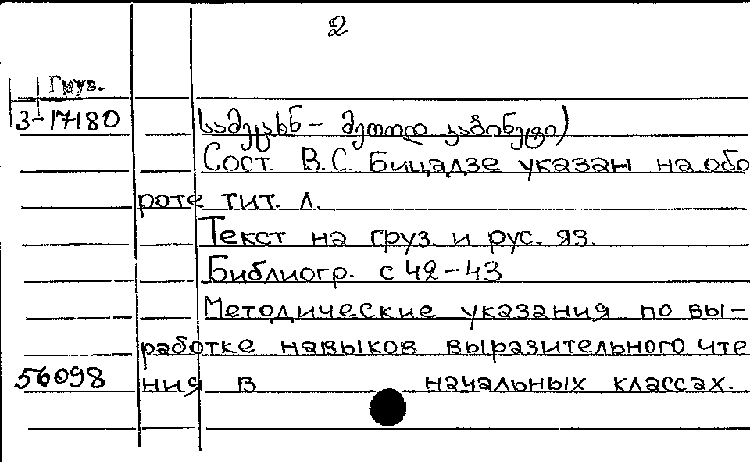 2
Груз.
3-17180
(სამეცნ - მეთოდ კაბინეტი)
Сост. В.С. Бицадзе указан на обо
роте тит. л.
Текст на груз. и рус. яз.
Библиогр. с 42-43
Методические указания по вы-
работке навыков выразительного чте
56098 ния в начальных классах.